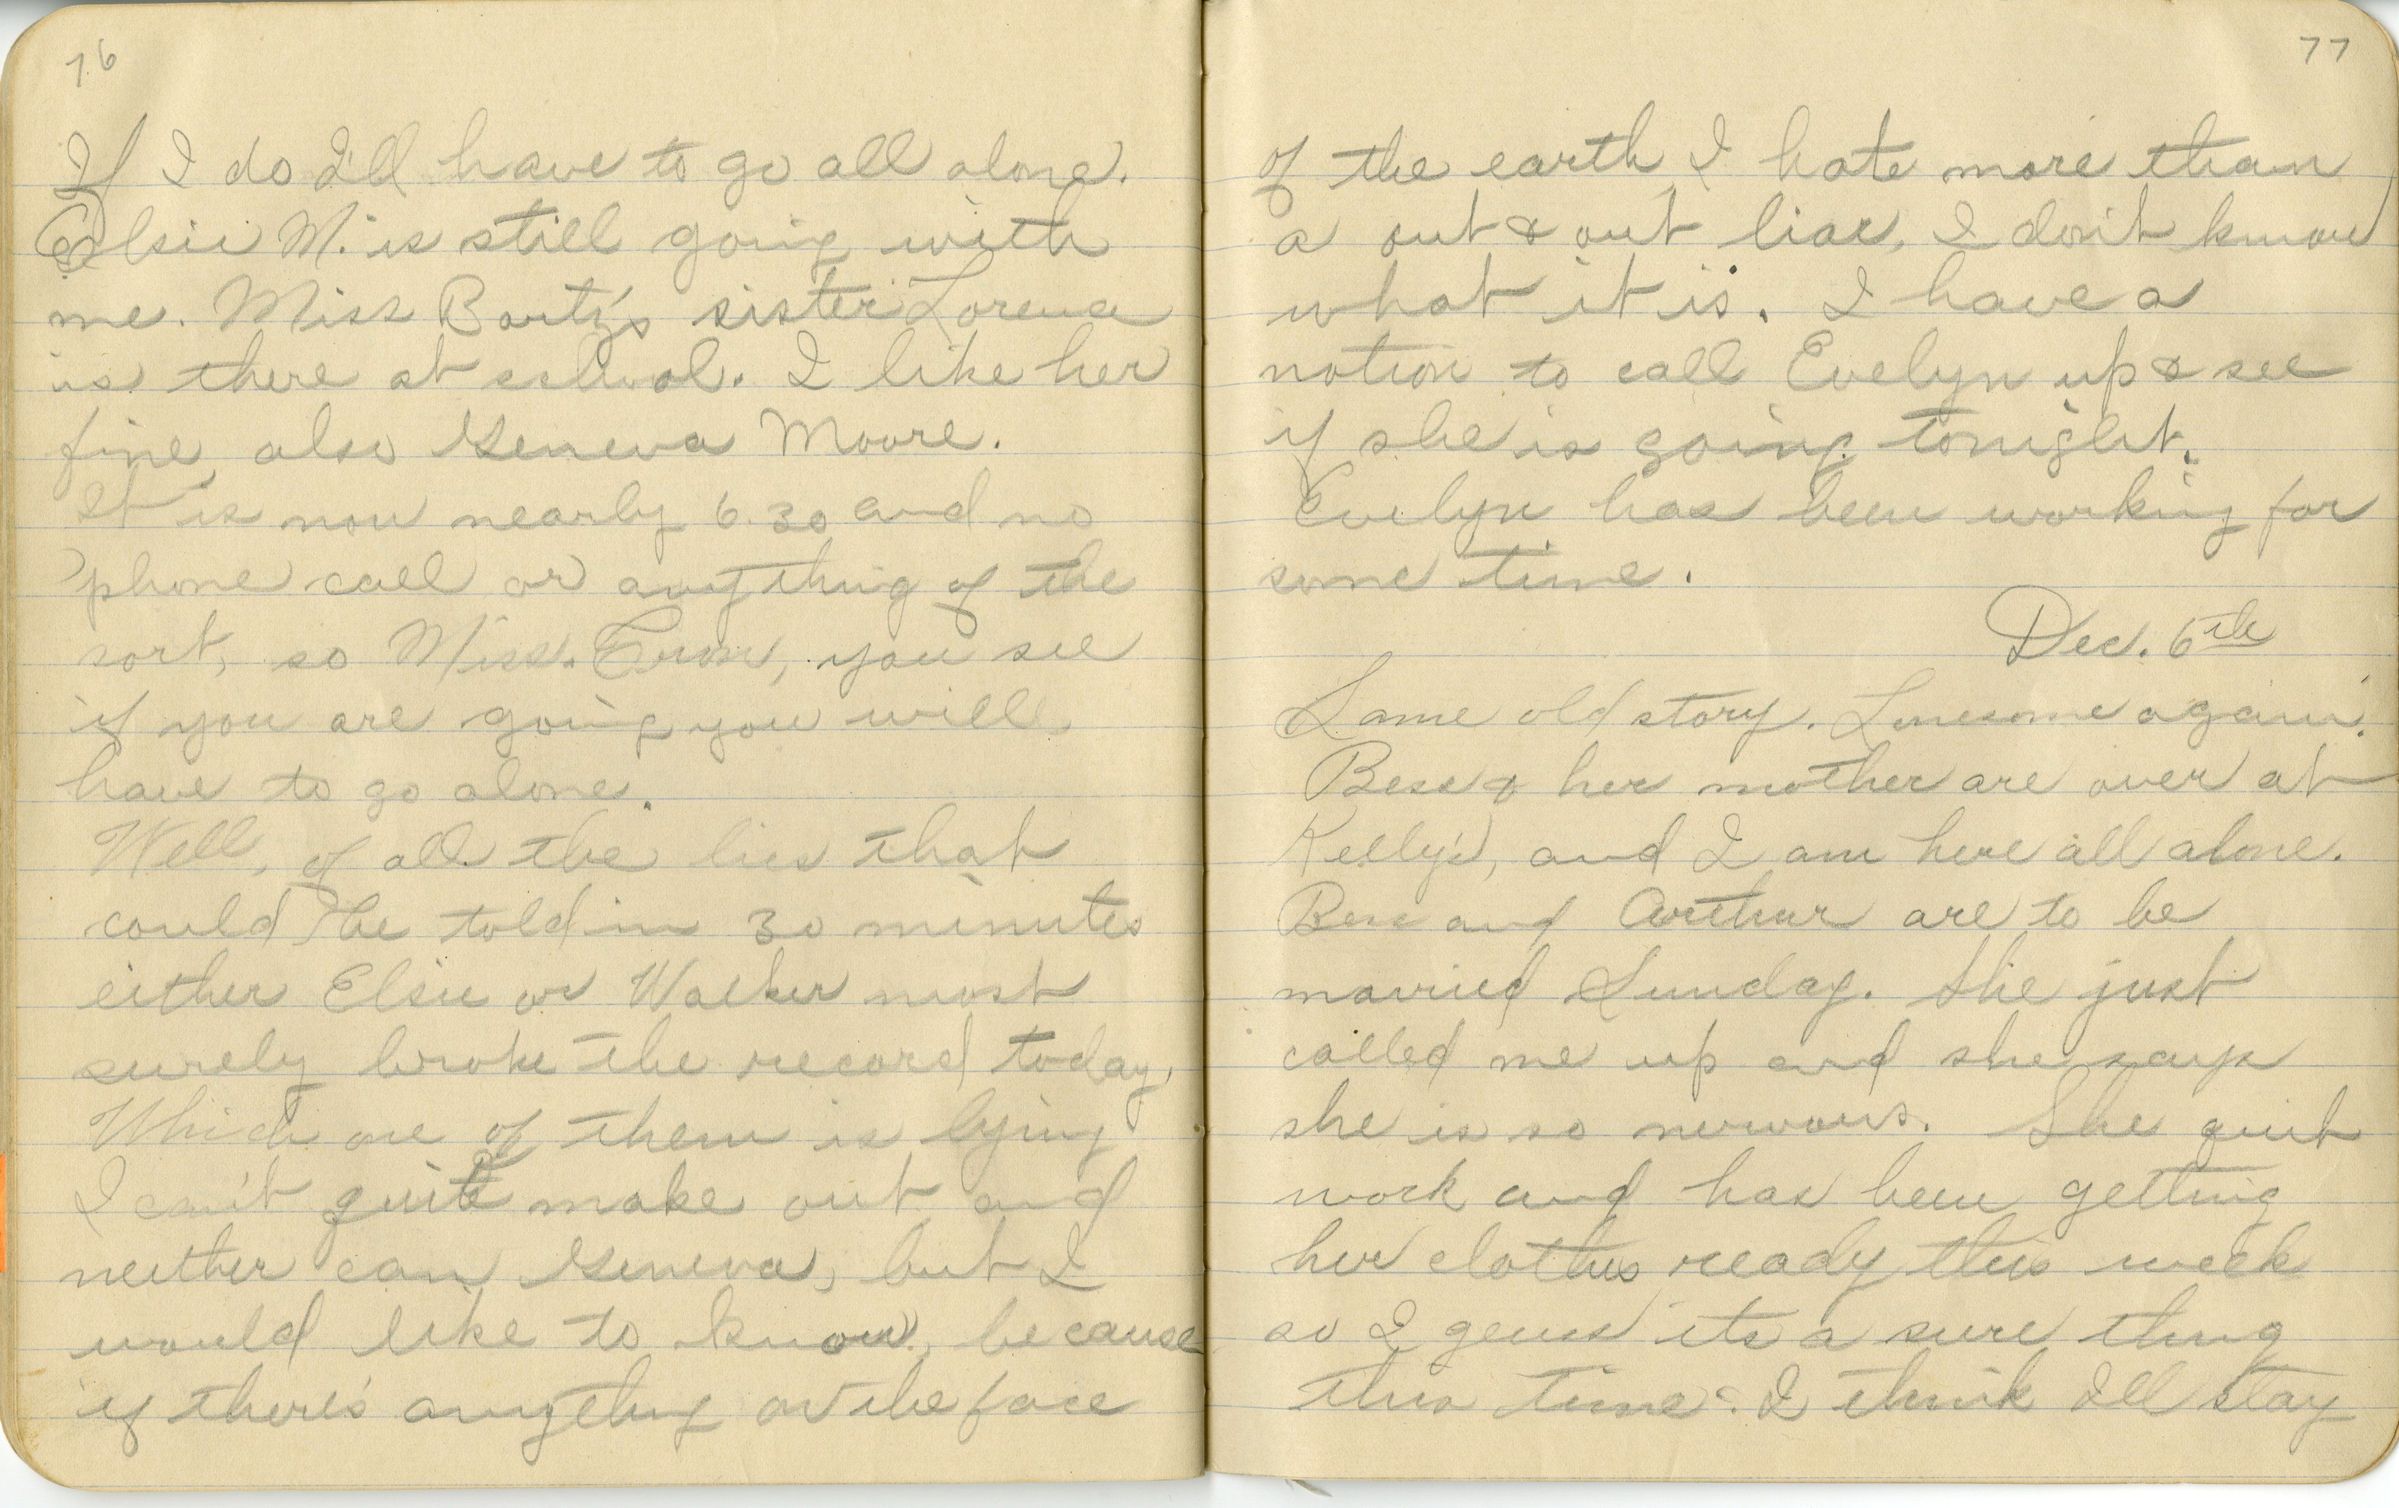 76
If I do I'll have to go all alone.
Elsie M. is still going with
me. Miss Bartz's sister Lorena
is there at school. I like her
fine, also Geneva Moore.
It is now nearly 6.30 and no
'phone call or anything of the
sort, so Miss. you see
if you are going you will
have to go alone.
Well, of all the lies that
could be told in 30 minutes
either Elsie or Walker most
surely broke the record today.
Which one of them is lying
I can't quite make out and
neither can Geneva, but I
would like to know, because
if there's anything on the face
77
of the earth I hate more than
a out & out liar, I don't know
what it is. I have a
notion to call Evelyn up & see
if she is going tonight.
Evelyn has been working for
some time.
Dec. 6th
Same old story. Lonesome again.
Bess & her mother are over at
Kelly's, and I am here all alone.
Bess and Arthur are to be
married Sunday. She just
called me up and she says
she is so nervous. She quit
work and has been getting
her clothes ready this week
so I guess its a sure thing
this time. I think I'll stay